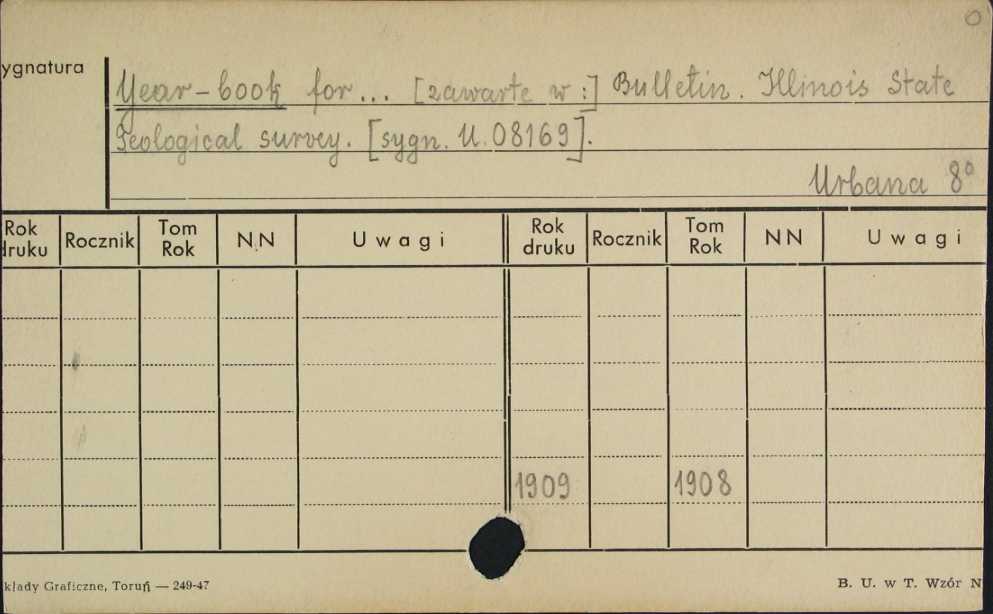 O
ygnatura
Year-book for... [zawarte w:] Bulletin. Illinois State
Geological survey. [sygn. U.08169].
Urbana 8°
Rok druku Rocznik Tom Rok NN Uwagi Rok druku Rocznik Tom Rok NN Uwagi
1909 1908
kłady Graficzne, Toruń — 249-47 B. U. w T. Wzór N